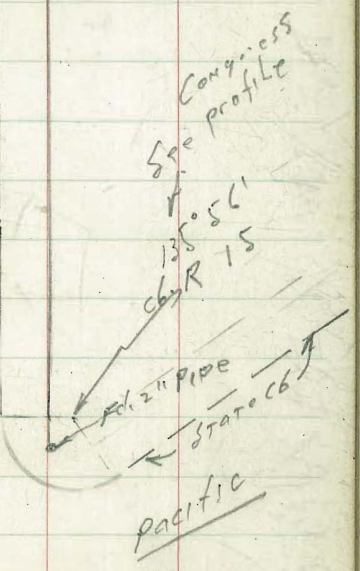 Congress
See profile
135° 56'
cb R 15
Fd. 2" pipe
State cb
pacific